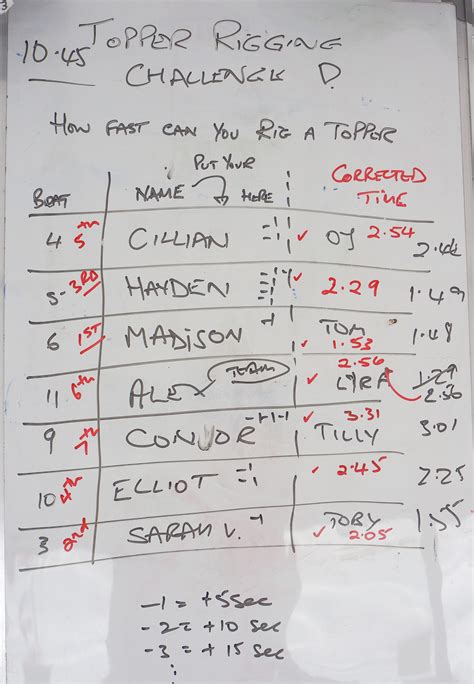 10.45 TOPPER RIGGING
CHALLENGE
HOW FAST CAN YOU RIG A TOPPER
PUT YOUR
BOAT NAME HERE CORRECTED TIME
4 5th CILLIAN -1 ✓ OJ 2.54
5 3RD HAYDEN ✓ 2.29 1.49
6 1ST MADISON -1 TOM ✓ 1.53 1.48
11 6th ALEX TEAM ✓ LYRA 2.56 1.29 2.36
9 7th CONNOR -1-1-1 ✓ 3.31 TILLY 3.01
10 4th ELLIOT ✓ 2.45 2.25
3 2nd SARAH V. -1 TOBY ✓ 2.05 1.55
-1 = +5sec
-2 = +10 sec
-3 = +15 sec